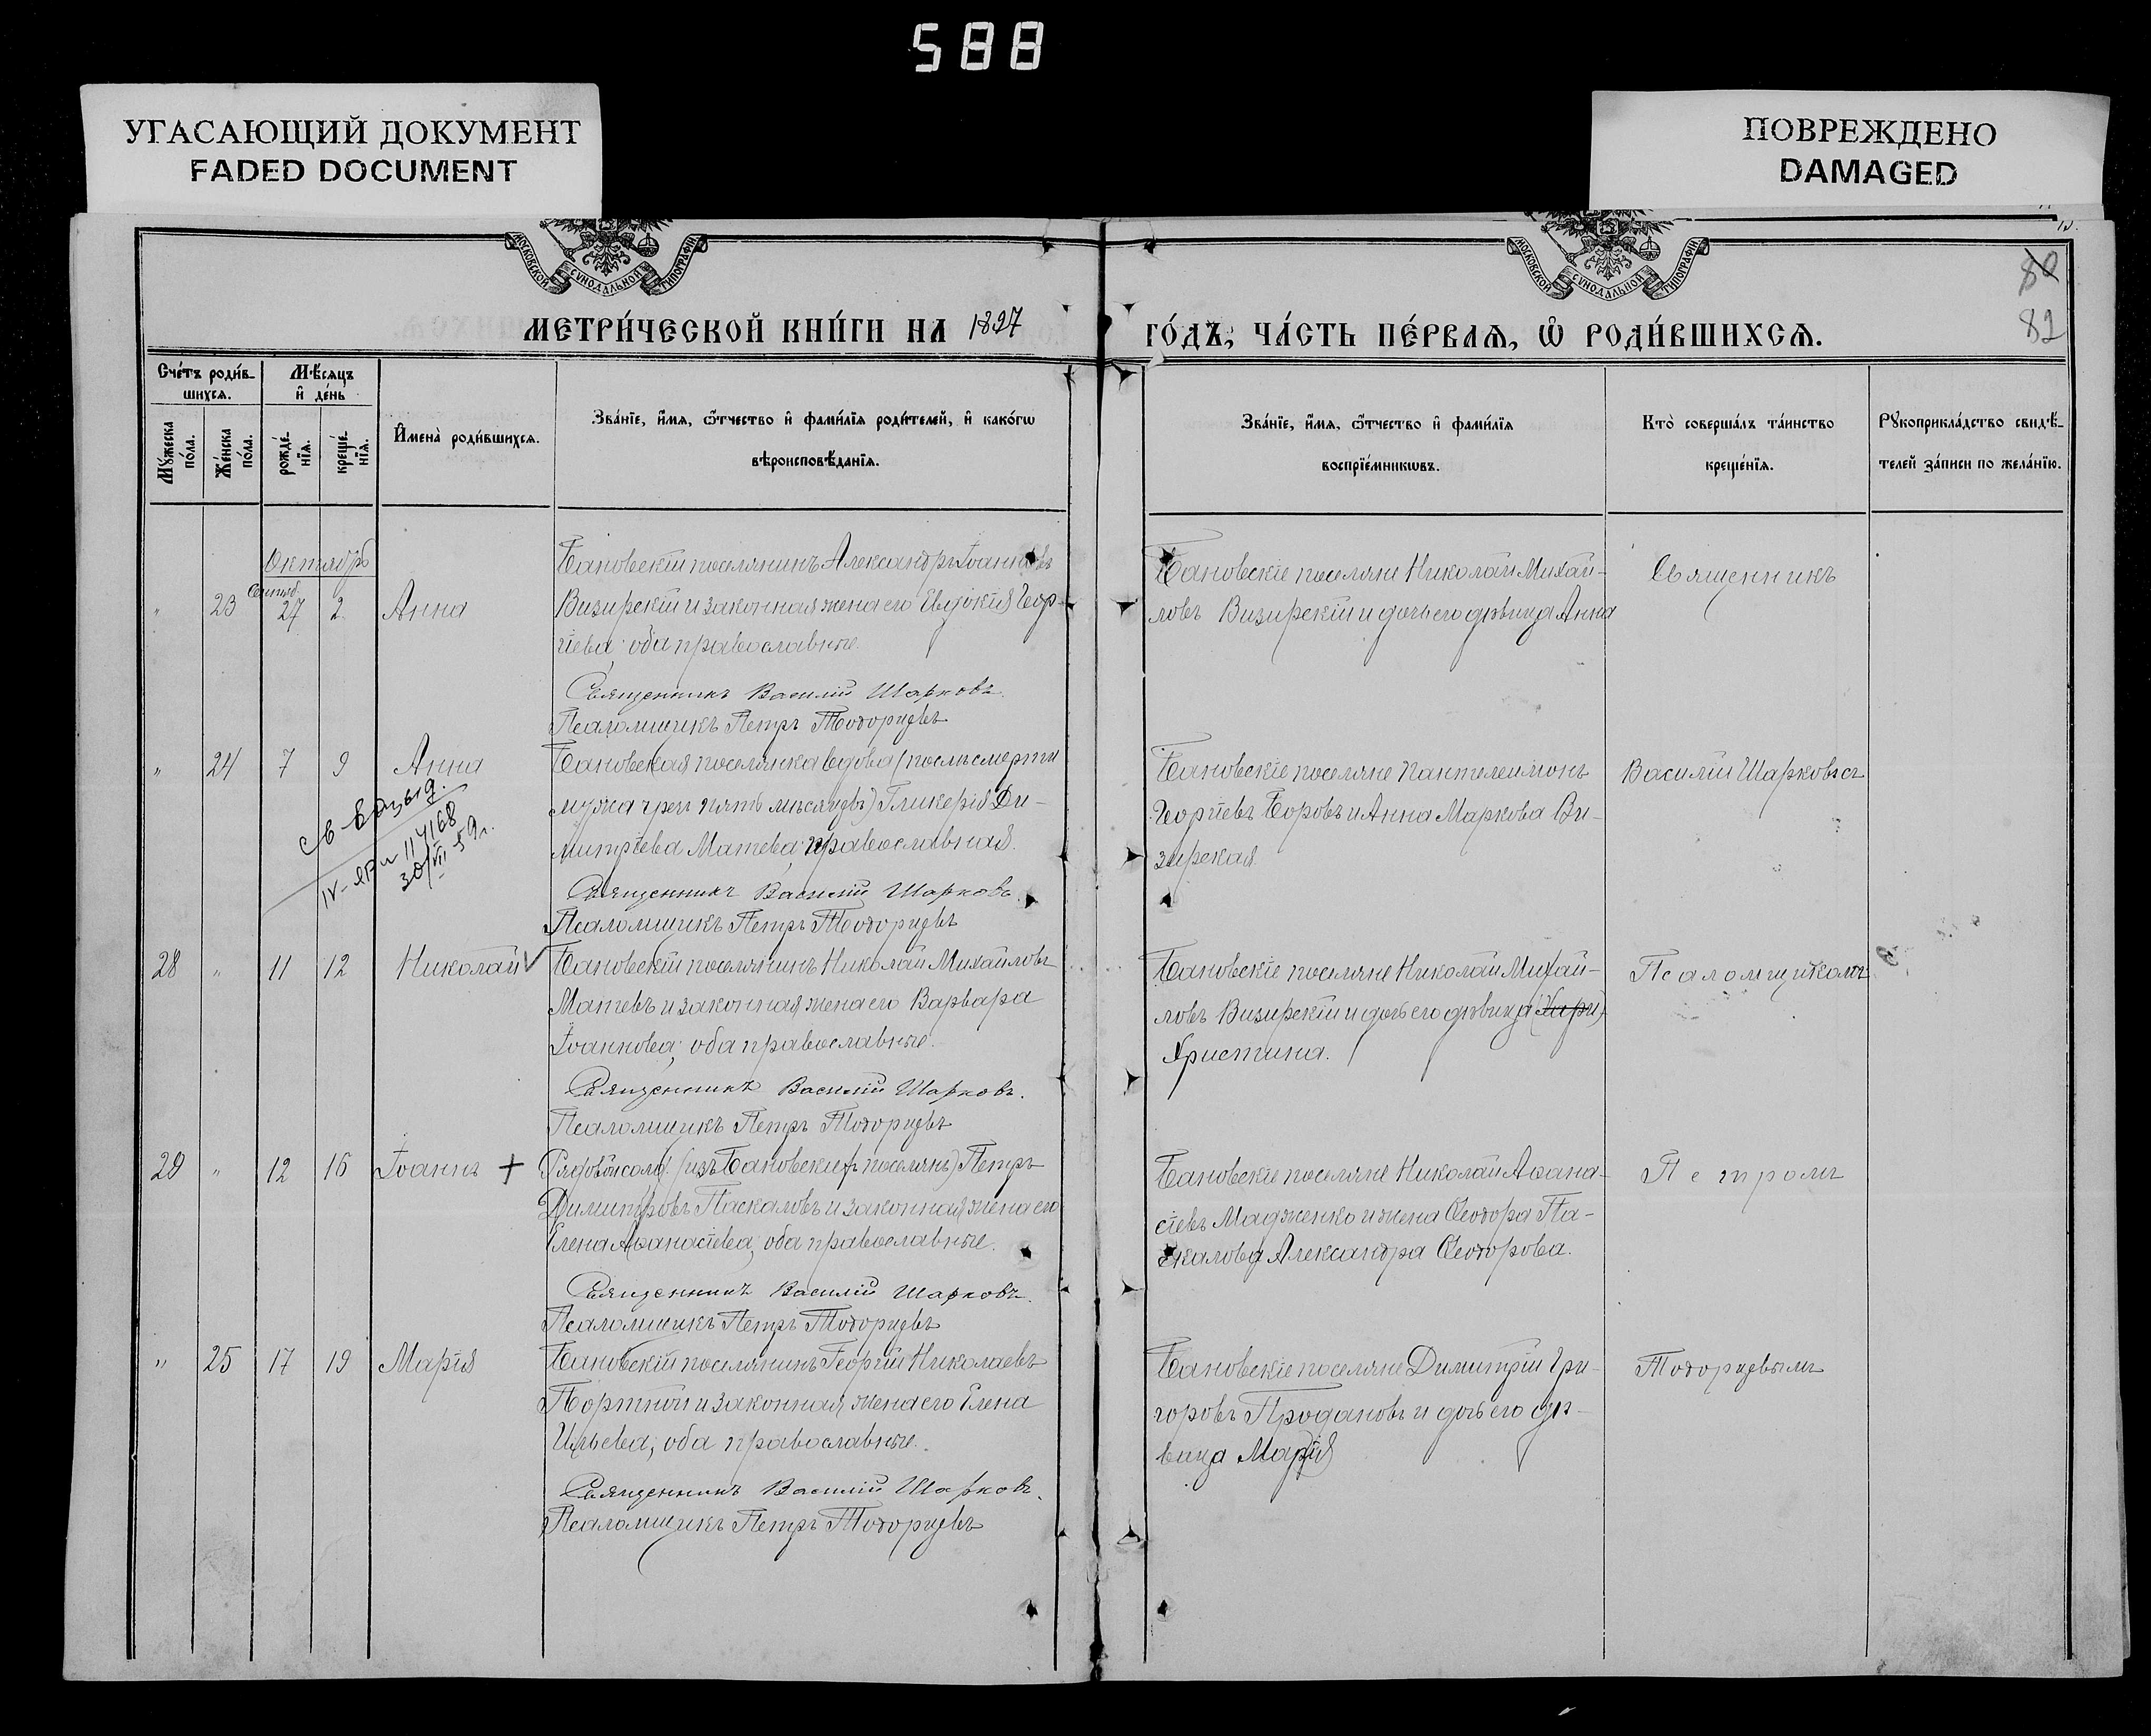 588
УГАСАЮЩИЙ ДОКУМЕНТ
FADED DOCUMENT
ПОВРЕЖДЕНО
DAMAGED
МОСКОВСКОЙ СѴНОДАЛЬНОЙ ТИПОГРАФІИ
МОСКОВСКОЙ СѴНОДАЛЬНОЙ ТИПОГРАФІИ
80
82
МЕТРИ́ЧЕСКОЙ КНИ́ГИ НА 1897
ГО́ДЪ, ЧА́СТЬ ПЕ́РВАѦ, Ѽ РОДИ́ВШИХСѦ.
Сче́тъ роди́в-
шихсѧ.
Мѣ́сѧцъ
и҆ де́нь
Мꙋ́жеска
по́ла.
Же́нска
по́ла.
рожде́-
нїѧ.
креще́-
нїѧ.
И҆мена̀ роди́вшихсѧ.
Зва́нїе, и҆́мѧ, ѻ҆́тчество и҆ фами́лїѧ роди́телей, и҆ како́гѡ
вѣроисповѣ́данїѧ.
Зва́нїе, и҆́мѧ, ѻ҆́тчество и҆ фами́лїѧ
воспрїе́мникѡвъ.
Кто̀ соверша́лъ та́инство
креще́нїѧ.
Рꙋкоприкла́дство свидѣ́-
телей за́писи по жела́нїю.
Октябрь
Сентяб.
" 23 27 2 Анна
Бановскій поселянинъ Александръ Іоанновъ
Визирскій и законная жена его Евдокія Геор-
гіева; оба православные.
Священникъ Василій Шарковъ.
Псаломщикъ Петръ Тодорцевъ
Бановскіе поселяне Николай Михай-
ловъ Визирскій и дочь его дѣвица Анна
Священникъ
" 24 7 9 Анна
30/VII 59г.
Бановская поселянка вдова (послѣ смерти
мужа чрез пять мѣсяцевъ) Гликерія Ди-
митріева Матева; православная.
Священникъ Василій Шарковъ.
Псаломщикъ Петръ Тодорцевъ
Бановскіе поселяне Пантелеимонъ
Георгіевъ Боровъ и Анна Маркова Ви-
зирская
Василій Шарковъ съ
28 " 11 12 Николай
Бановскій поселянинъ Николай Михайловъ
Матевъ и законная жена его Варвара
Іоаннова; оба православные.
Священникъ Василій Шарковъ.
Псаломщикъ Петръ Тодорцевъ
Бановскіе поселяне Николай Михай-
ловъ Визирскій и дочь его дѣвица (Хари)
Христина.
Псаломщикомъ
29 " 12 16 Іоаннъ +
(изъ Бановскихъ поселянъ) Петръ
Димитровъ Паскаловъ и законная жена его
Елена Аѳанасіева; оба православные.
Священникъ Василій Шарковъ.
Псаломщикъ Петръ Тодорцевъ
Бановскіе поселяне Николай Аѳана-
сіевъ Мадженко и жена Ѳеодора Па-
скалова Александра Ѳеодорова.
Петромъ
" 25 17 19 Марія
Бановскій поселянинъ Георгій Николаевъ
Портной и законная жена его Елена
Ильева; оба православные.
Священникъ Василій Шарковъ.
Псаломщикъ Петръ Тодорцевъ
Бановскіе поселяне Димитрій Гри-
горовъ Продановъ и дочь его дѣ-
вица Марія
Тодорцевымъ